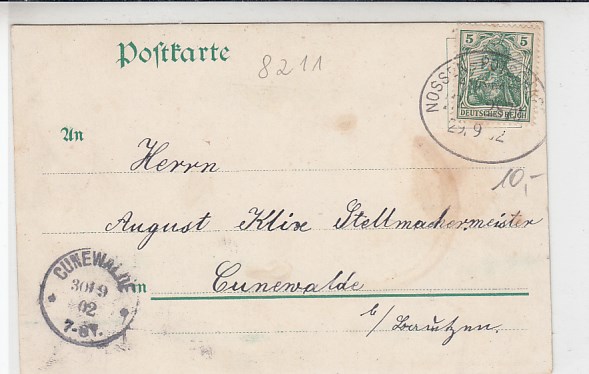 Postkarte
8211
5 5
DEUTSCHES REICH
NOSSEN
29.9 02
An
Herrn
10,-
August Klix Stellmachermeister
in Cunewalde
b/Bautzen.
CUNEWALDE
30/9
02
7-8V.